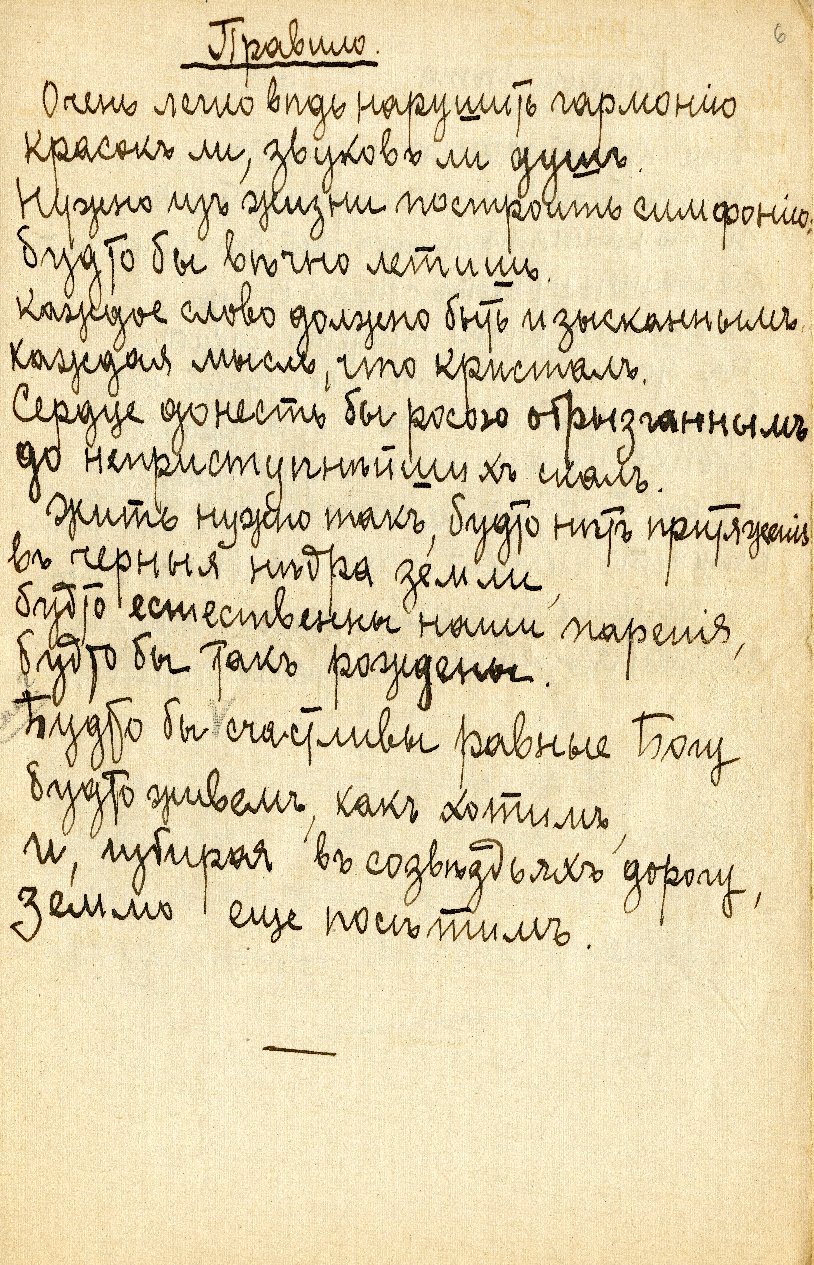 6
Правило.
Очень легко вѣдь нарушить гармонію
красокъ ли, звуковъ ли душъ.
Нужно изъ жизни построить симфонію;
будто бы вѣчно летишь.
каждое слово должно быть изысканнымъ
каждая мысль, что кристалъ.
Сердце донесть бы росою обрызганнымъ
до неприступнѣйшихъ скалъ.
Жить нужно такъ, будто нѣтъ притяженія
въ черныя нѣдра земли,
будто естественны наши паренія,
будто бы такъ рождены.
Будто бы счастливы равные Богу
будто живемъ, какъ хотимъ,
и, избирая въ созвѣздьяхъ дорогу,
землю еще посѣтимъ.